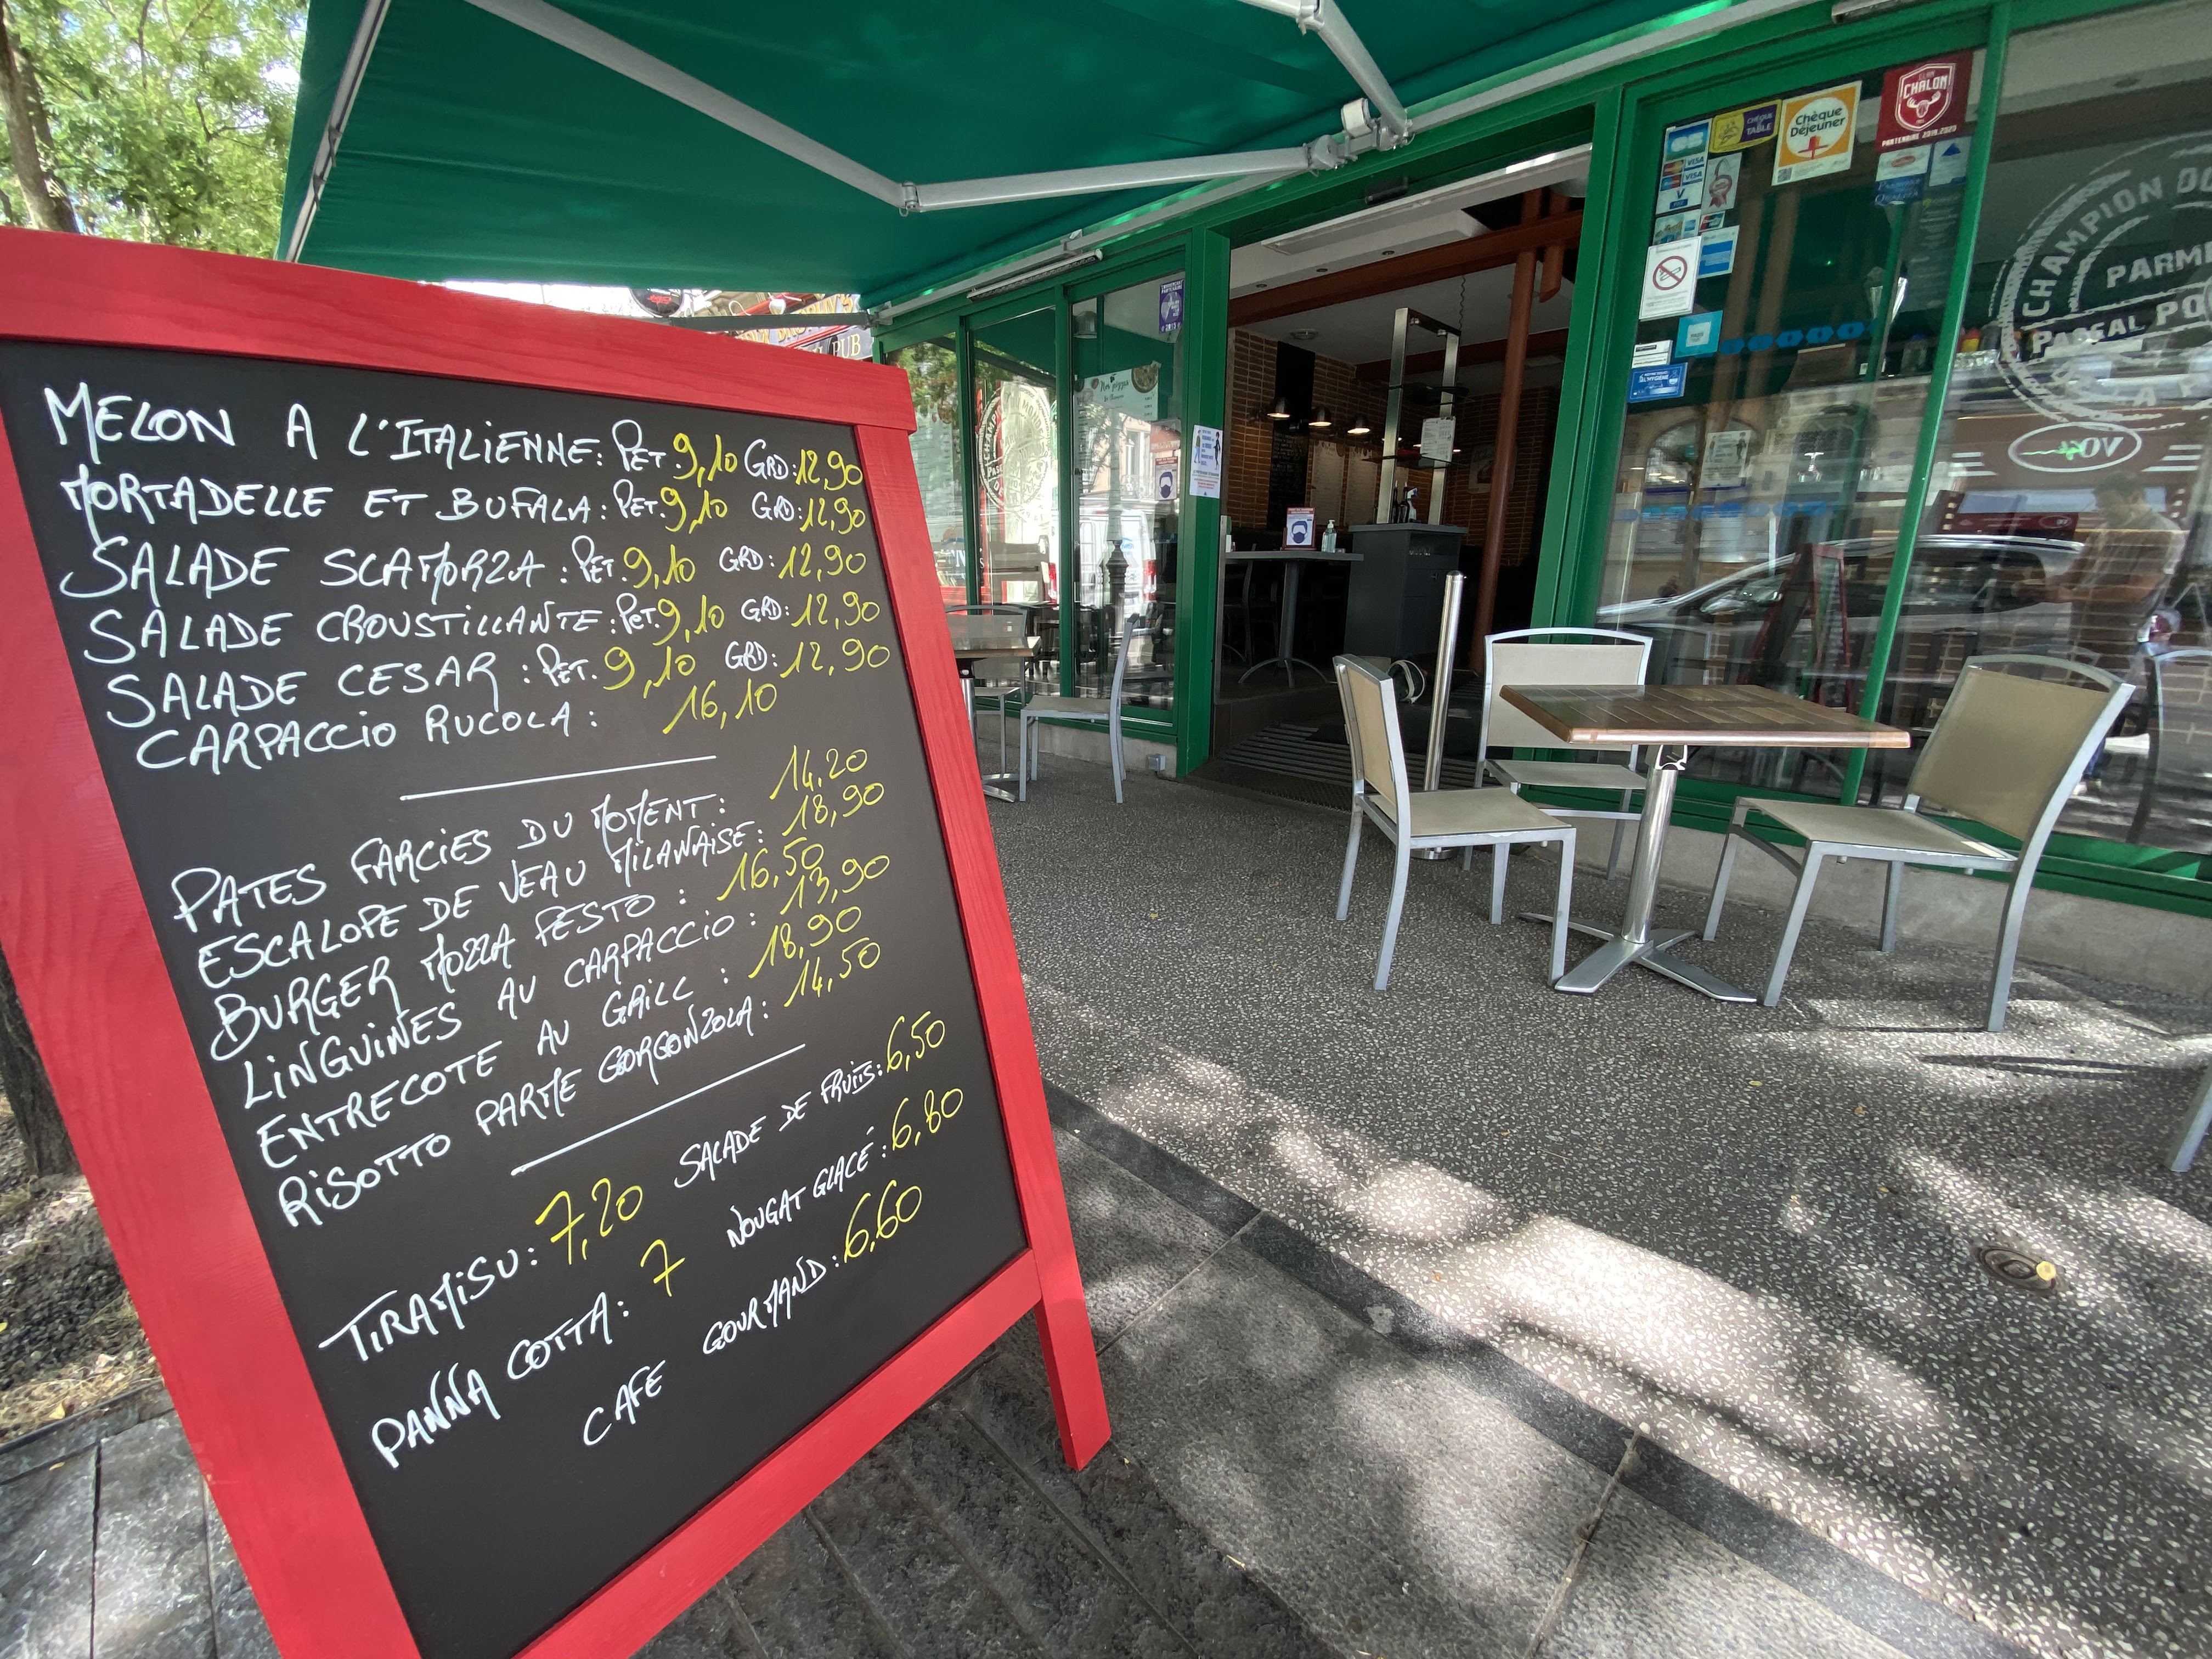 MELON A L'ITALIENNE: PET. 9,10 GRD: 12,90
MORTADELLE ET BUFALA: PET. 9,10 GRD: 12,90
SALADE SCAMORZA: PET. 9,10 GRD: 12,90
SALADE CROUSTILLANTE: PET. 9,10 GRD: 12,90
SALADE CESAR: PET. 9,10 GRD: 12,90
CARPACCIO RUCOLA: 16,10
PATES FARCIES DU MOMENT: 14,20
ESCALOPE DE VEAU MILANAISE: 18,90
BURGER MOZZA PESTO: 16,50
LINGUINES AU CARPACCIO: 13,90
ENTRECOTE AU GRILL: 18,90
RISOTTO PARME GORGONZOLA: 14,50
TIRAMISU: 7,20 SALADE DE FRUITS: 6,50
PANNA COTTA: 7 NOUGAT GLACÉ: 6,80
CAFE GOURMAND: 6,60
PUB
CHÈQUE
TABLE
Chèque
Déjeuner
ELAN
CHALON
PARTENAIRE 2019.2020
VISA
VISA
CHAMPION
PASCAL
Nos pizzas